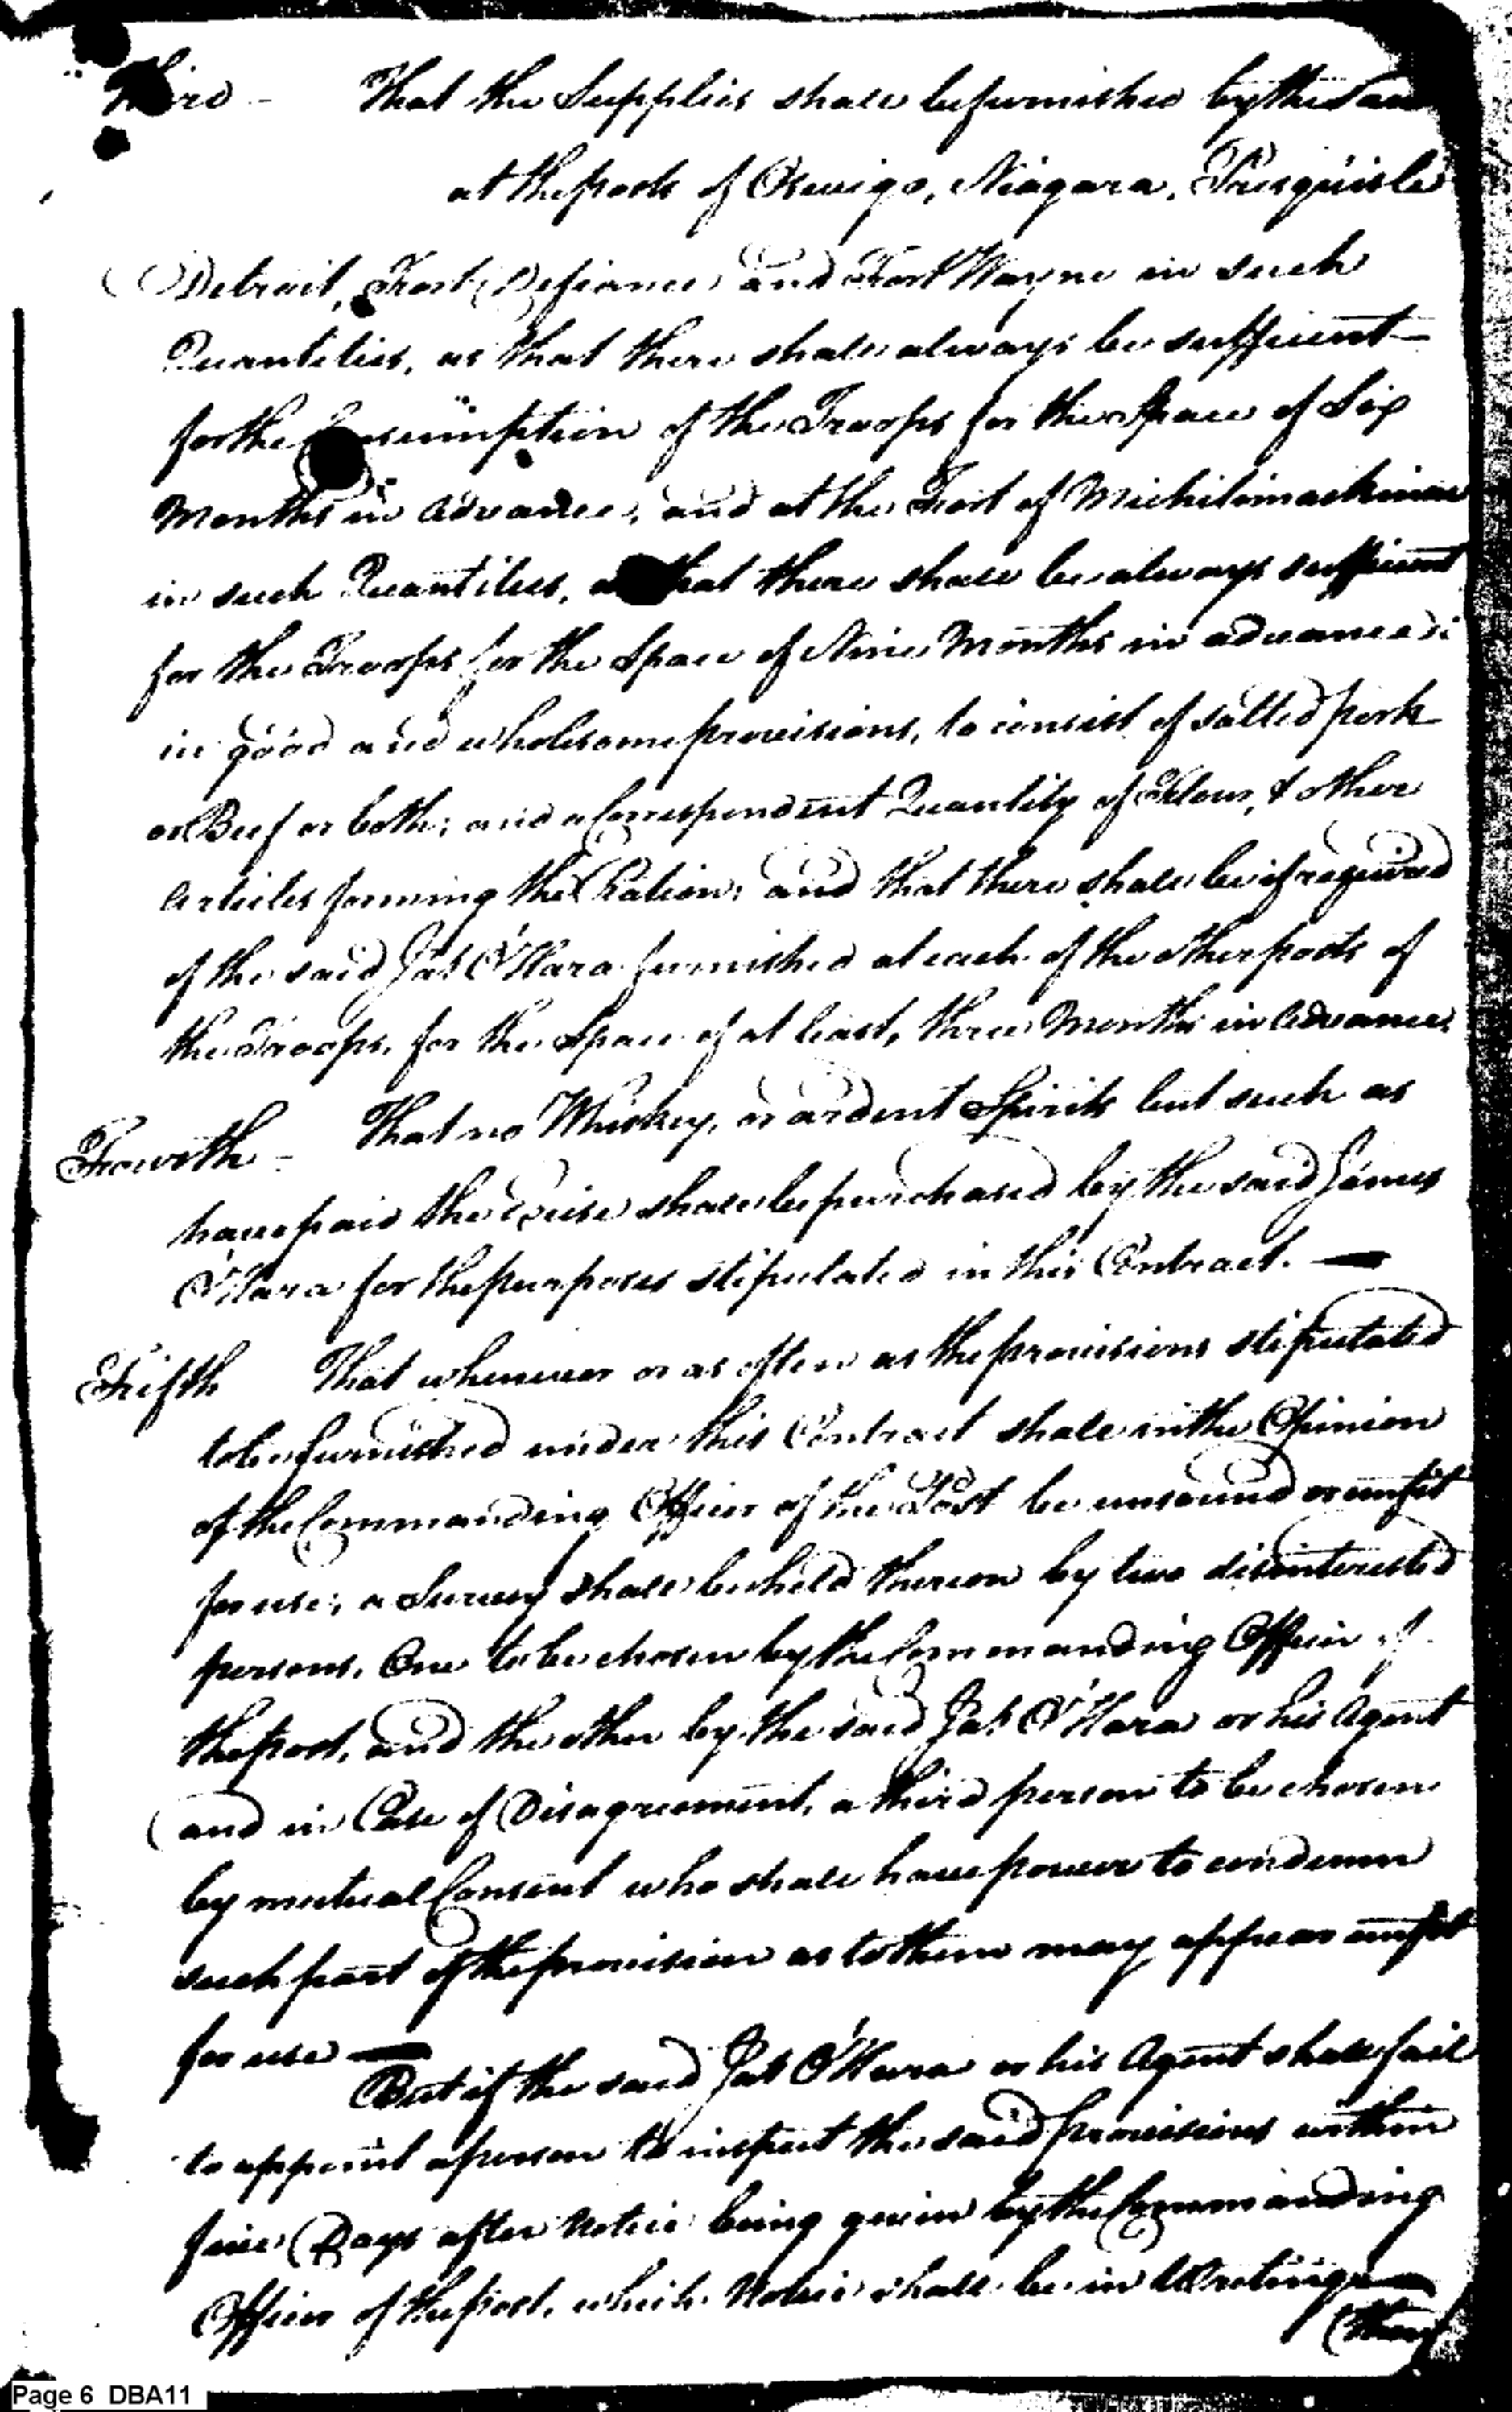 Third - That the Supplies shall be furnished by the said
at the posts of Oswego, Niagara, Presquisle
Detroit, Fort Defiance and Fort Wayne in such
Quantities, as that there shall always be sufficient
for the Consumption of the Troops for the Space of Six
Months in Advance, and at the Fort of Michilimackinac
in such Quantities, as that there shall be always sufficient
for the Troops for the Space of Nine Months in advance
in good and wholesome provisions, to consist of salted pork
or Beef or both; and a Correspondent Quantity of Flour, & other
Articles forming the Ration; and that there shall be if required
of the said Jas O'Hara furnished at each of the other posts of
the Troops, for the Space of at least, three Months in Advance.
Fourth - That no Whiskey, or ardent Spirits but such as
have paid the Excise shall be purchased by the said James
O'Hara for the purposes stipulated in this Contract. —
Fifth That whenever or as often as the provisions stipulated
to be furnished under this Contract shall in the Opinion
of the Commanding Officer of the Post be unsound or unfit
for use; a Survey shall be held thereon by two disinterested
persons, One to be chosen by the Commanding Officer of
the post, and the other by the said Jas O'Hara or his Agent
and in Case of Disagreement, a third person to be chosen
by mutual Consent who shall have power to condemn
such part of the provision as to them may appear unfit
for use —
But if the said Jas O'Hara or his Agent shall fail
to appoint a person to inspect the said provisions within
five Days after Notice being given by the Commanding
Officer of the post, which Notice shall be in Writing —
Page 6 DBA11